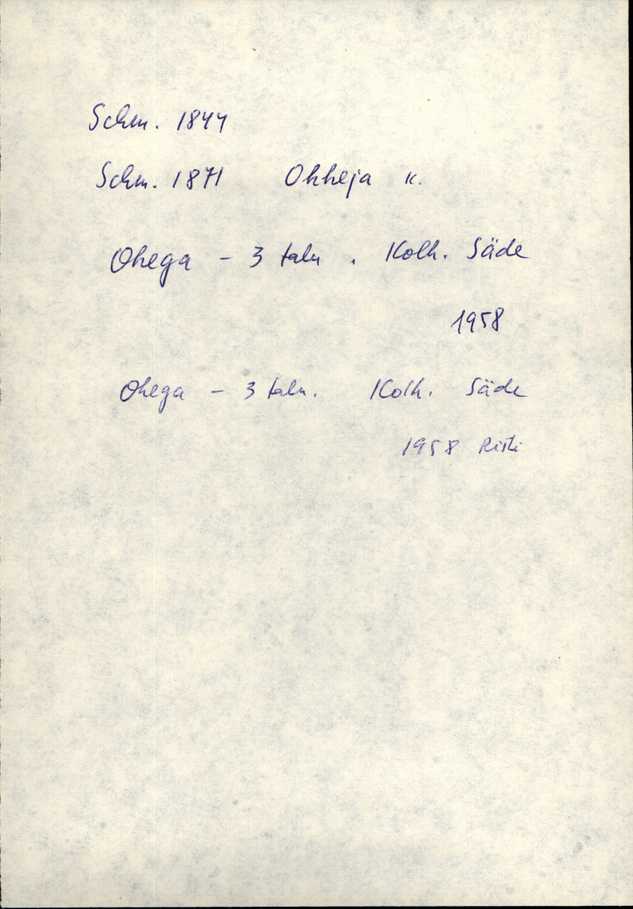 Schm. 1844
Schm. 1871 Ohheja k.
Ohega - 3 talu. Kolh. Säde
1958
Ohega - 3 talu. Kolh. Säde
1958 Risti